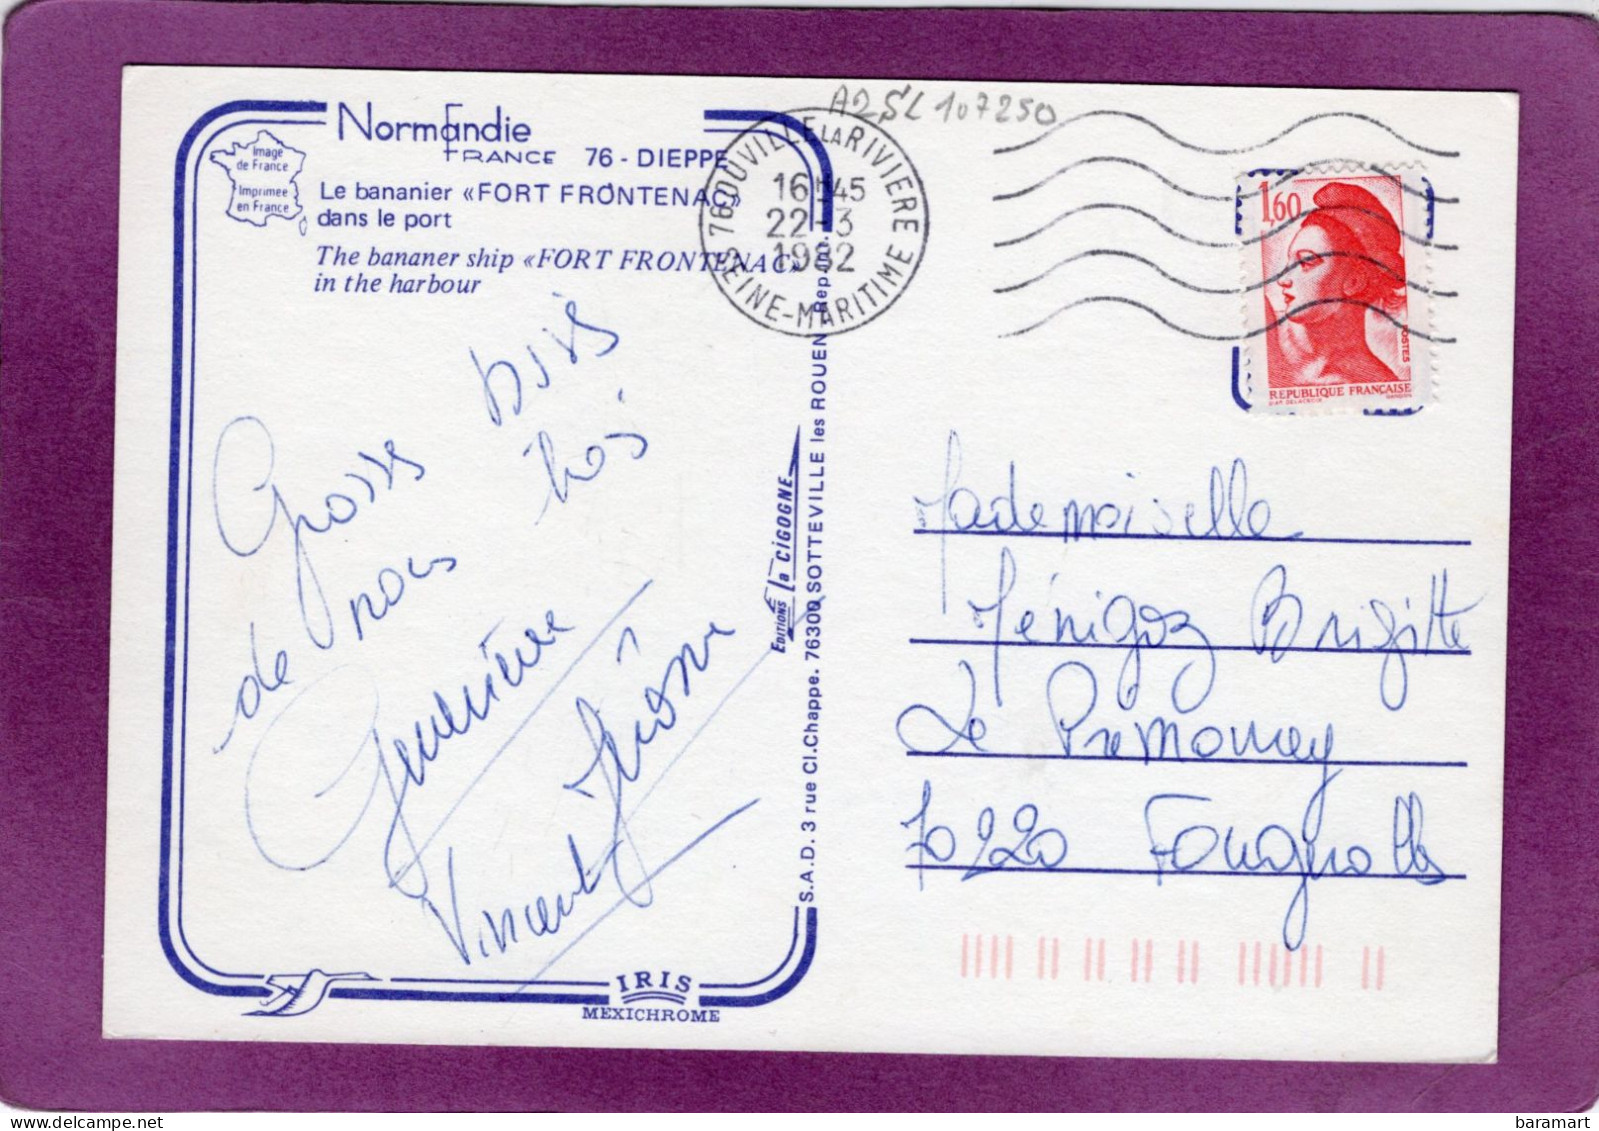 A2SL 107250
Normandie
FRANCE 76 - DIEPPE
Image
de France
Imprimée
en France
Le bananier «FORT FRONTENAC»
dans le port
The bananer ship «FORT FRONTENAC»
in the harbour
76 OUVILLE LA RIVIERE
16H45
22-3
1982
SEINE-MARITIME
1,60
POSTES
REPUBLIQUE FRANÇAISE
D'AP. DELACROIX GANDON
Grosses bises
de nous trois
Geneviève
Jérôme
Vincent
EDITIONS La CIGOGNE
S.A.D. 3 rue Cl.Chappe. 76300 SOTTEVILLE les ROUEN Rep.
Mademoiselle
Ménigoz Brigitte
Le Prémourey
70220 Fougerolles
IRIS
MEXICHROME
baramart